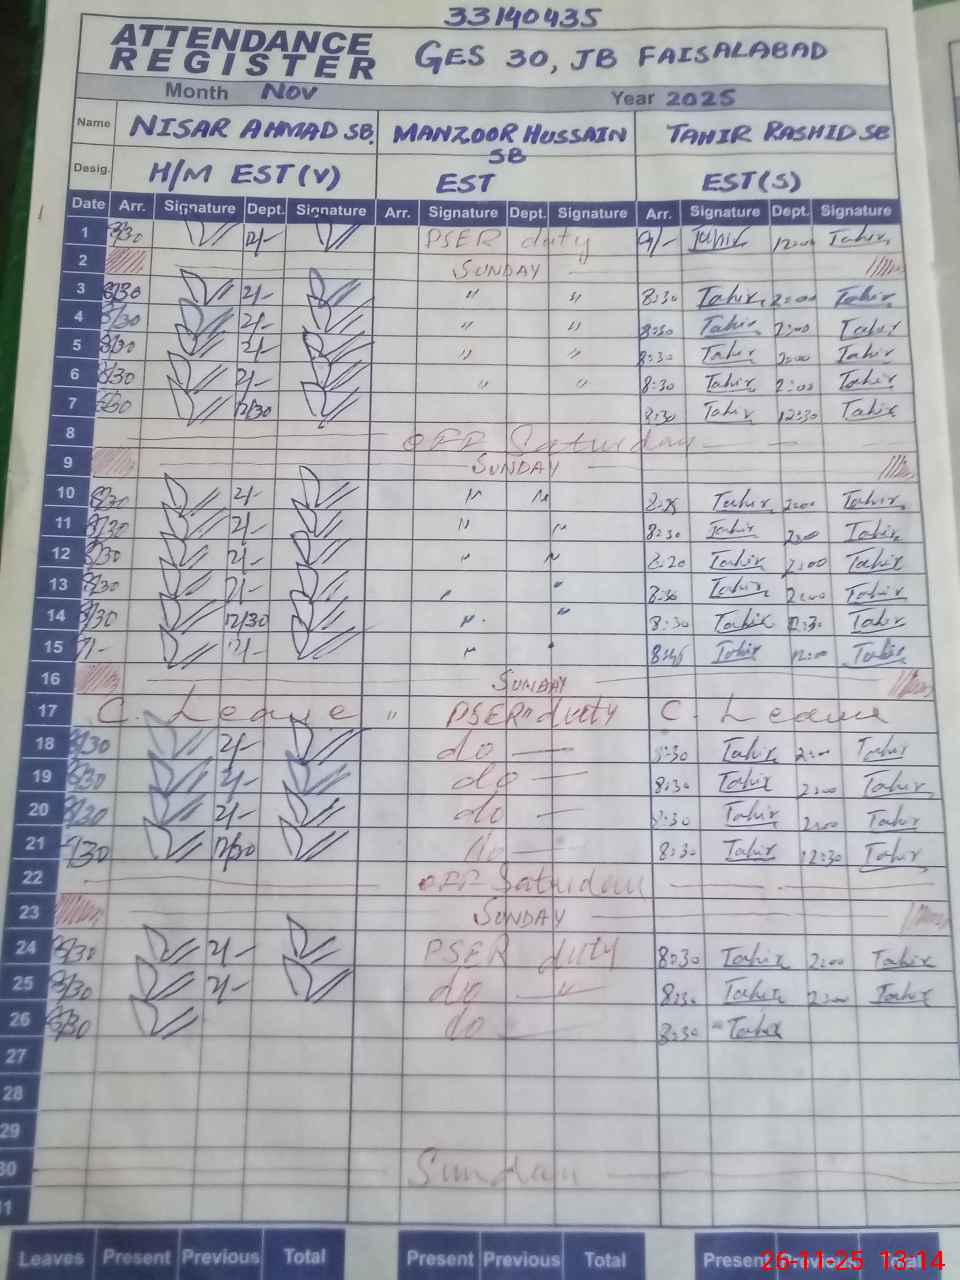 33140435
ATTENDANCE REGISTER GES 30, JB FAISALABAD
Month Nov Year 2025
Name NISAR AHMAD SB. MANZOOR HUSSAIN SB TAHIR RASHID SB
Desig. H/M EST(V) EST EST(S)
Date Arr. Signature Dept. Signature Arr. Signature Dept. Signature Arr. Signature Dept. Signature
1 8/30 12/- PSER duty 9/- Tahir 12:00 Tahir
2 SUNDAY
3 8/30 2/- " " 8:30 Tahir 2:00 Tahir
4 8/30 2/- " " 8:30 Tahir 2:00 Tahir
5 8/30 2/- " " 8:30 Tahir 2:00 Tahir
6 8/30 2/- " " 8:30 Tahir 2:00 Tahir
7 8/30 12/30 8:30 Tahir 12:30 Tahir
8 OFF Saturday
9 SUNDAY
10 8/30 2/- " " Tahir 2:00 Tahir
11 8/30 2/- " " 8:30 Tahir 2:00 Tahir
12 8/30 2/- " " Tahir 2:00 Tahir
13 8/30 2/- " " 8:30 Tahir 2:00 Tahir
14 8/30 12/30 " " 8:30 Tahir 12:30 Tahir
15 " " 8:45 Tahir 12:00 Tahir
16 SUNDAY
17 C. Leave " PSER" duty C. Leave
18 8/30 2/- do 8:30 Tahir 2:00 Tahir
19 8/30 2/- do 8:30 Tahir 2:00 Tahir
20 8/30 2/- do 8:30 Tahir 2:00 Tahir
21 8/30 12/30 do 8:30 Tahir 12:30 Tahir
22 OFF Saturday
23 SUNDAY
24 8/30 2/- PSER duty 8:30 Tahir 2:00 Tahir
25 8/30 2/- do " 8:30 Tahir 2:00 Tahir
26 8/30 do 8:30 Tahir
27
28
29
30 Sunday
31
Leaves Present Previous Total Present Previous Total Present Previous Total
26-11-25 13:14